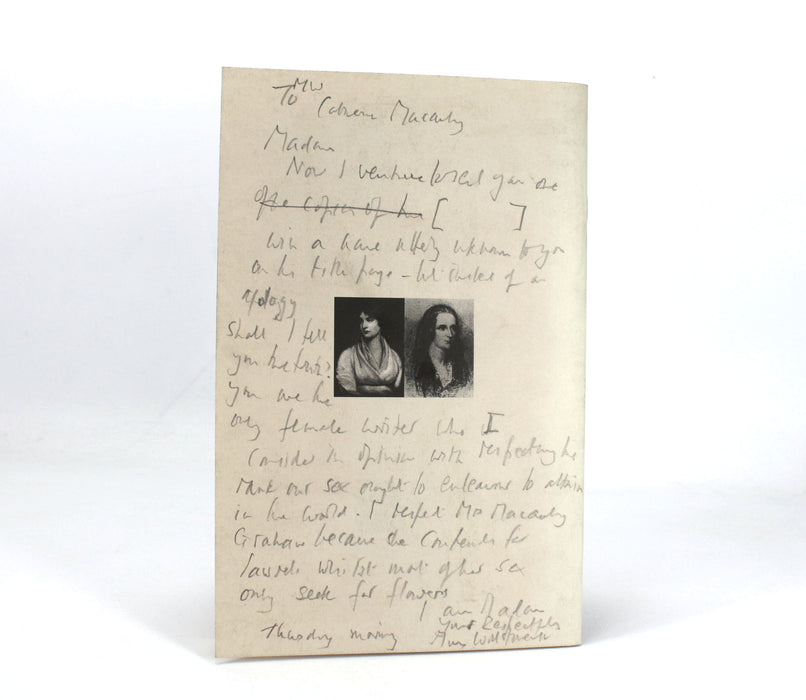 MW
To Catherine Macaulay
Madam
Now I venture to send you one
of the copies of his [ ]
with a name utterly unknown to you
on the title page - but instead of an
apology
Shall I tell
you the truth?
you are the
only female writer who I
consider in opinion with respecting the
rank our sex ought to endeavour to attain
in the world. I respect Mrs Macaulay
Graham because she contends for
laurels whilst most of her sex
only seek for flowers
I am Madam
Yours Respectfully
Mary Wollstonecraft
Thursday morning